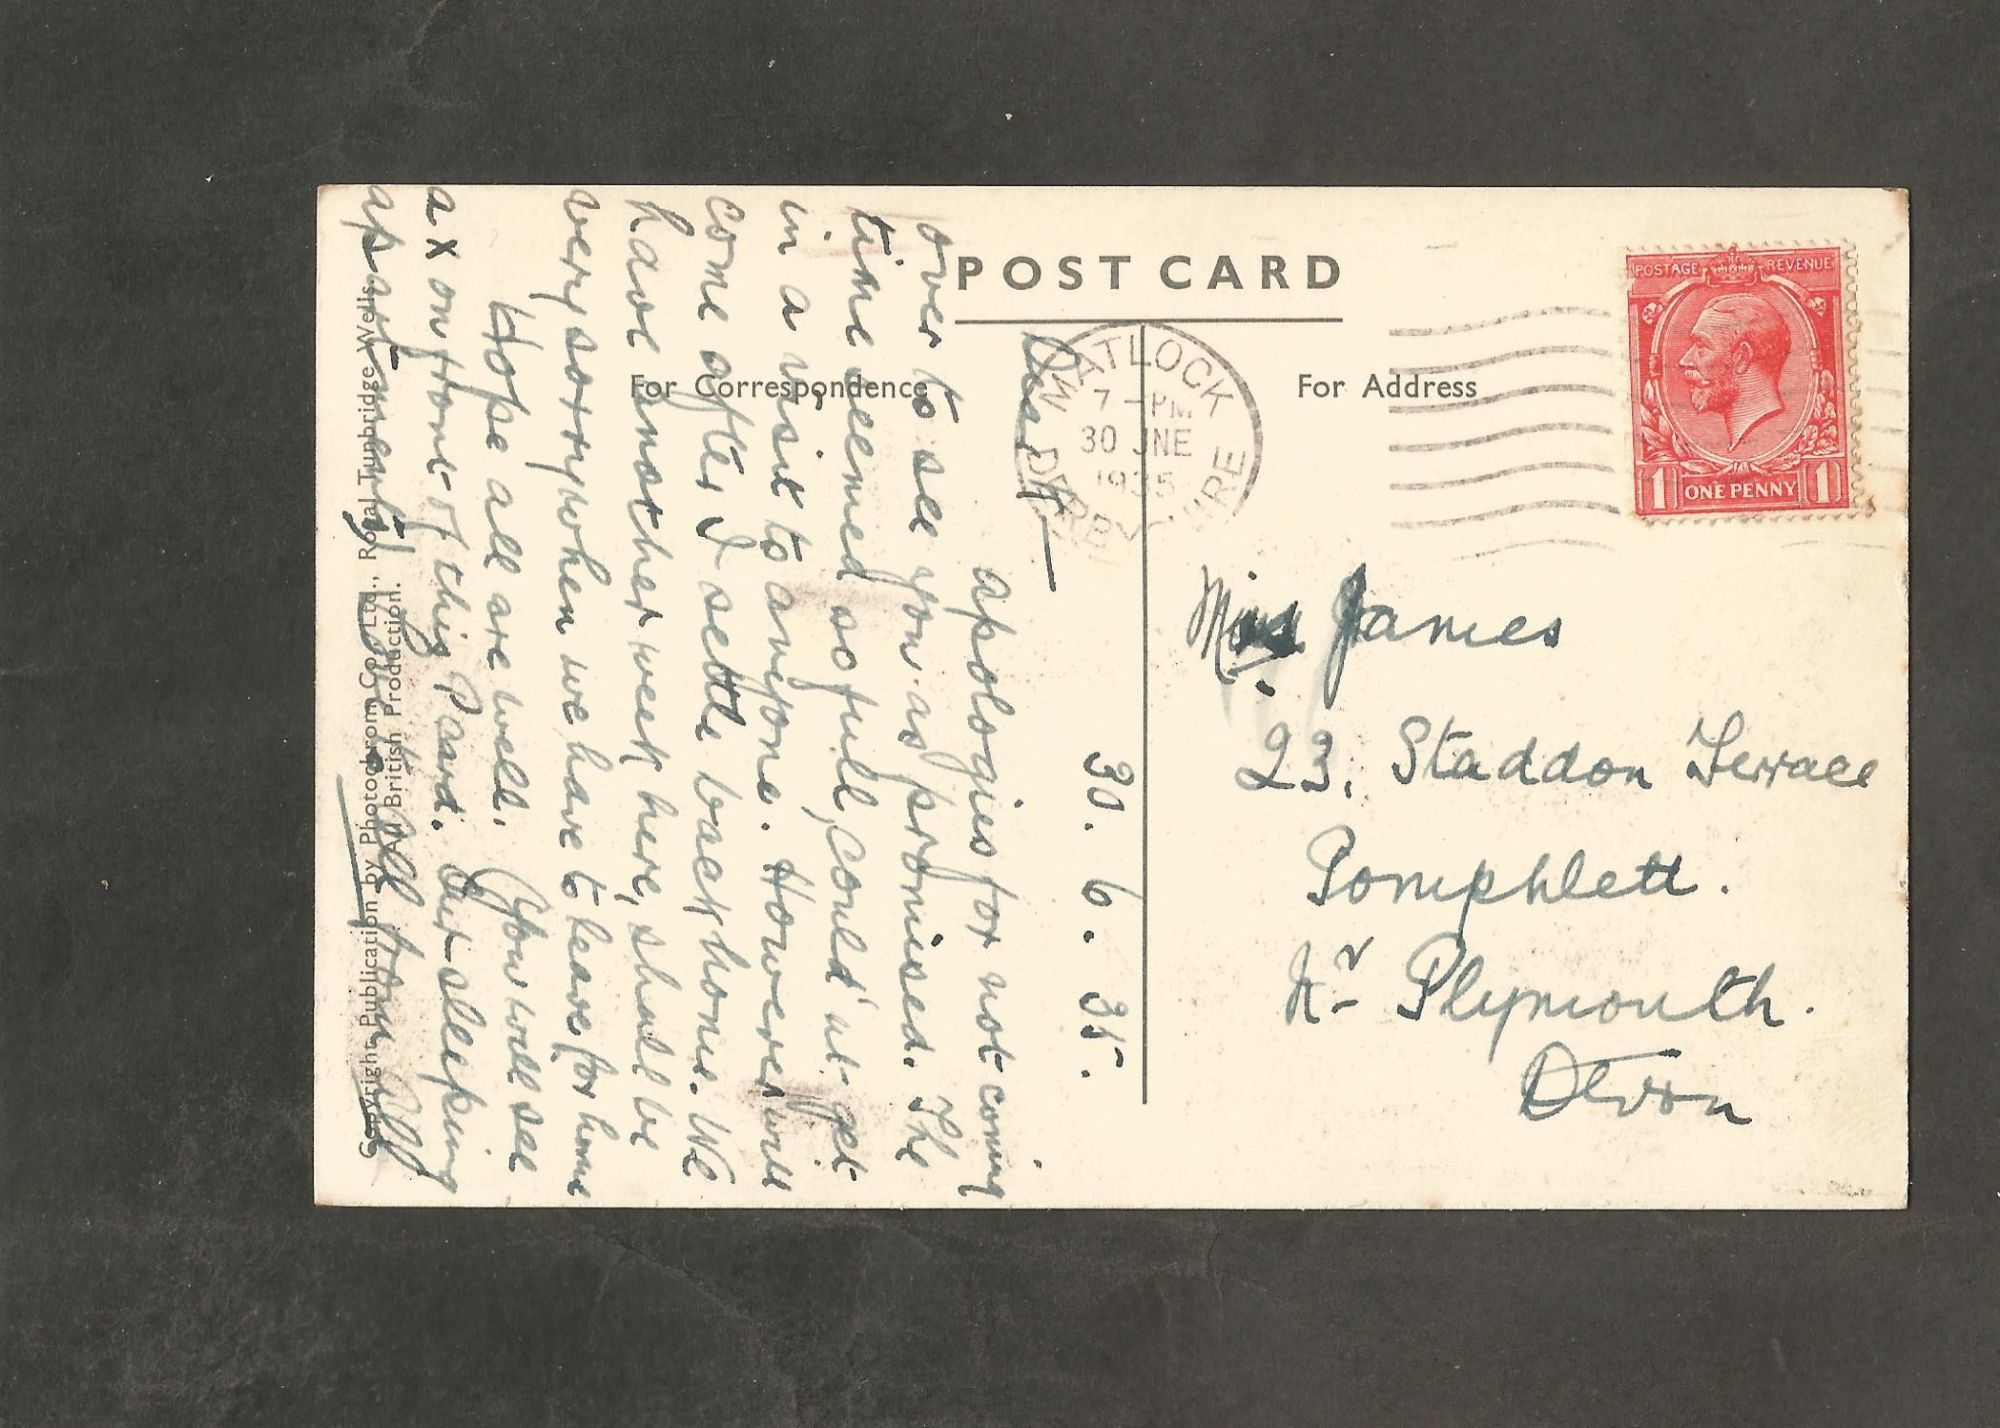 POST CARD
For Correspondence
For Address
MATLOCK
7 - PM
30 JNE
1935
DERBYSHIRE
POSTAGE REVENUE
1 ONE PENNY 1
Miss James
23. Staddon Terrace
Pomphlett.
Nr Plymouth.
Devon
30. 6. 35.
apologies for not coming
over to see you as promised. The
time seemed so full, could'nt get
in a visit to anyone. However will
come after I settle back home. We
have another week here, shall be
very sorry when we have to leave for home
Hope all are well. You will see
a x on front of this Card. Our sleeping
apartments
all from All
Copyright Publication by Photochrom Co. Ltd., Royal Tunbridge Wells.
All British Production.